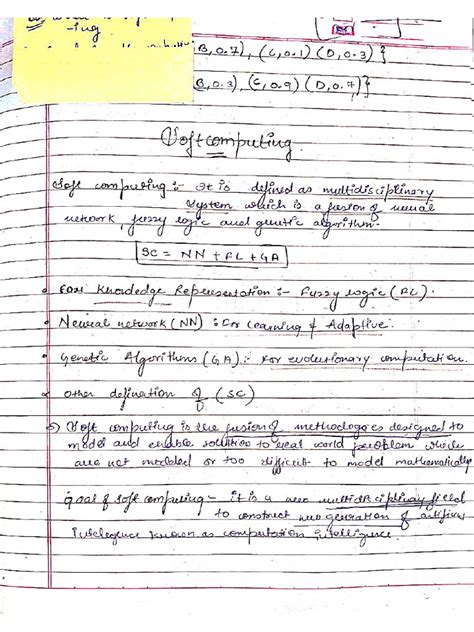 -ing
B, 0.7), (C, 0.1) (D, 0.3) }
B, 0.3), (C, 0.9) (D, 0.7)}
Soft computing
Soft computing :- It is defined as multidisciplinary
system which is a fusion of neural
network, fuzzy logic and genetic algorithm.
SC = NN + FL + GA
For Knowledge Representation :- Fuzzy logic (FL).
Neural network (NN) : For Learning & Adaptive.
Genetic Algorithms (GA) : For evolutionary computation.
other defination of (SC)
Soft computing is the fusion of methodologies designed to
model and enable solution to real world problem which
are not modeled or too difficult to model mathematically
Goal of soft computing - It is a new multidisciplinary field
to construct new generation of artificial
Intelegence known as computation intelligence.